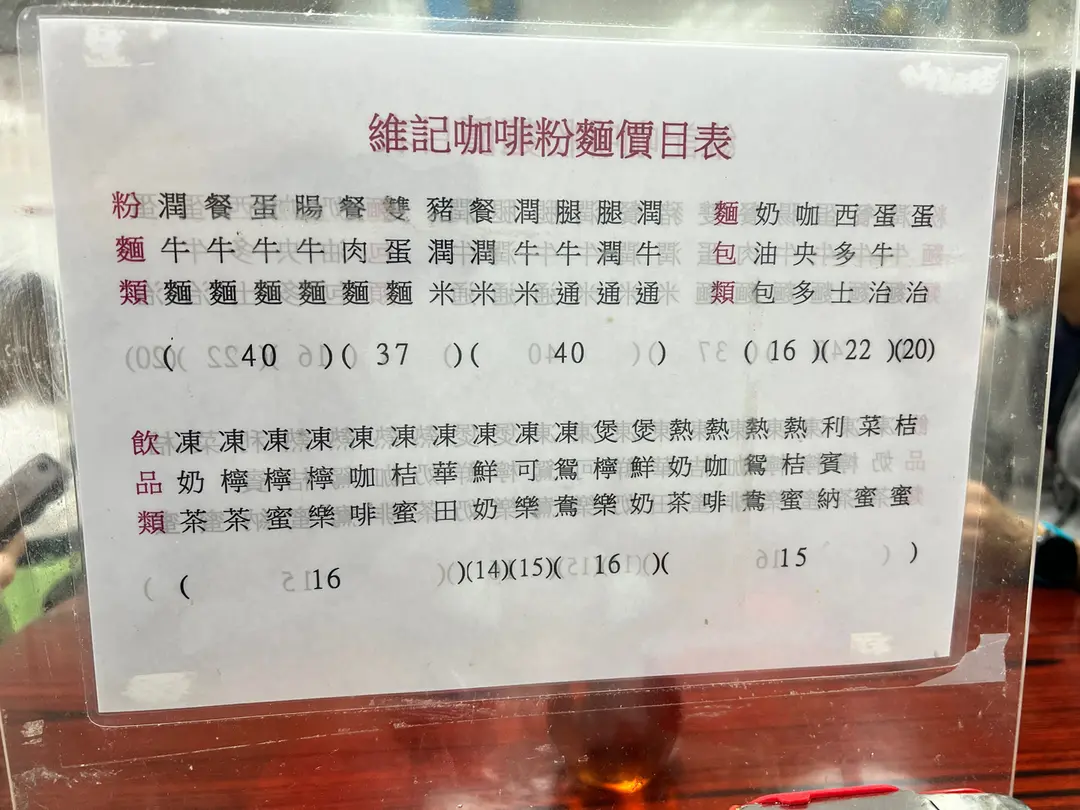 維記咖啡粉麵價目表
粉麵類
潤牛麵
餐牛麵
蛋牛麵
腸牛麵
餐肉麵
雙蛋麵
豬潤米
餐潤米
潤牛米
腿牛通
腿潤通
潤牛通
( 40 )( 37 )( 40 )
麵包類
奶油包
咖央多
西多士
蛋牛治
蛋治
( 16 )( 22 )(20)
飲品類
凍奶茶
凍檸茶
凍檸蜜
凍檸樂
凍咖啡
凍桔蜜
凍華田
凍鮮奶
凍可樂
凍鴛鴦
煲檸樂
煲鮮奶
熱奶茶
熱咖啡
熱鴛鴦
熱桔蜜
利賓納
菜蜜
桔蜜
( 16 )(14)(15)( 16 )( 15 )